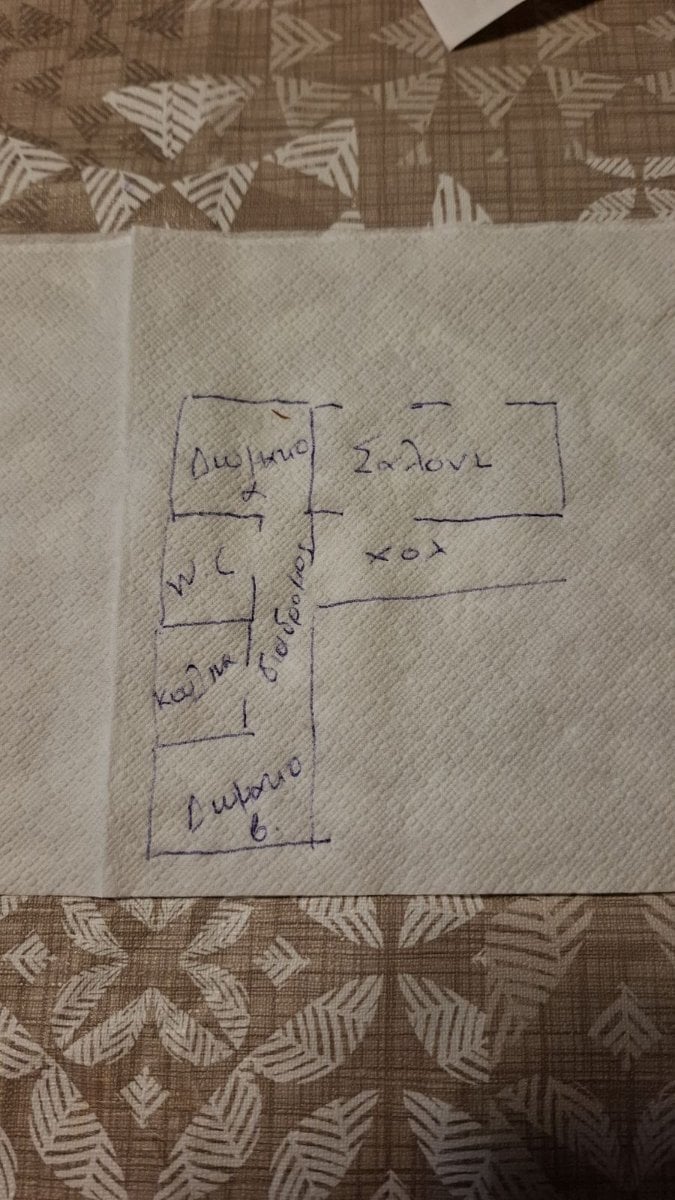 Δωμάτιο
α
Σαλόνι
W.C
χολ
διάδρομος
κουζίνα
Δωμάτιο
β.